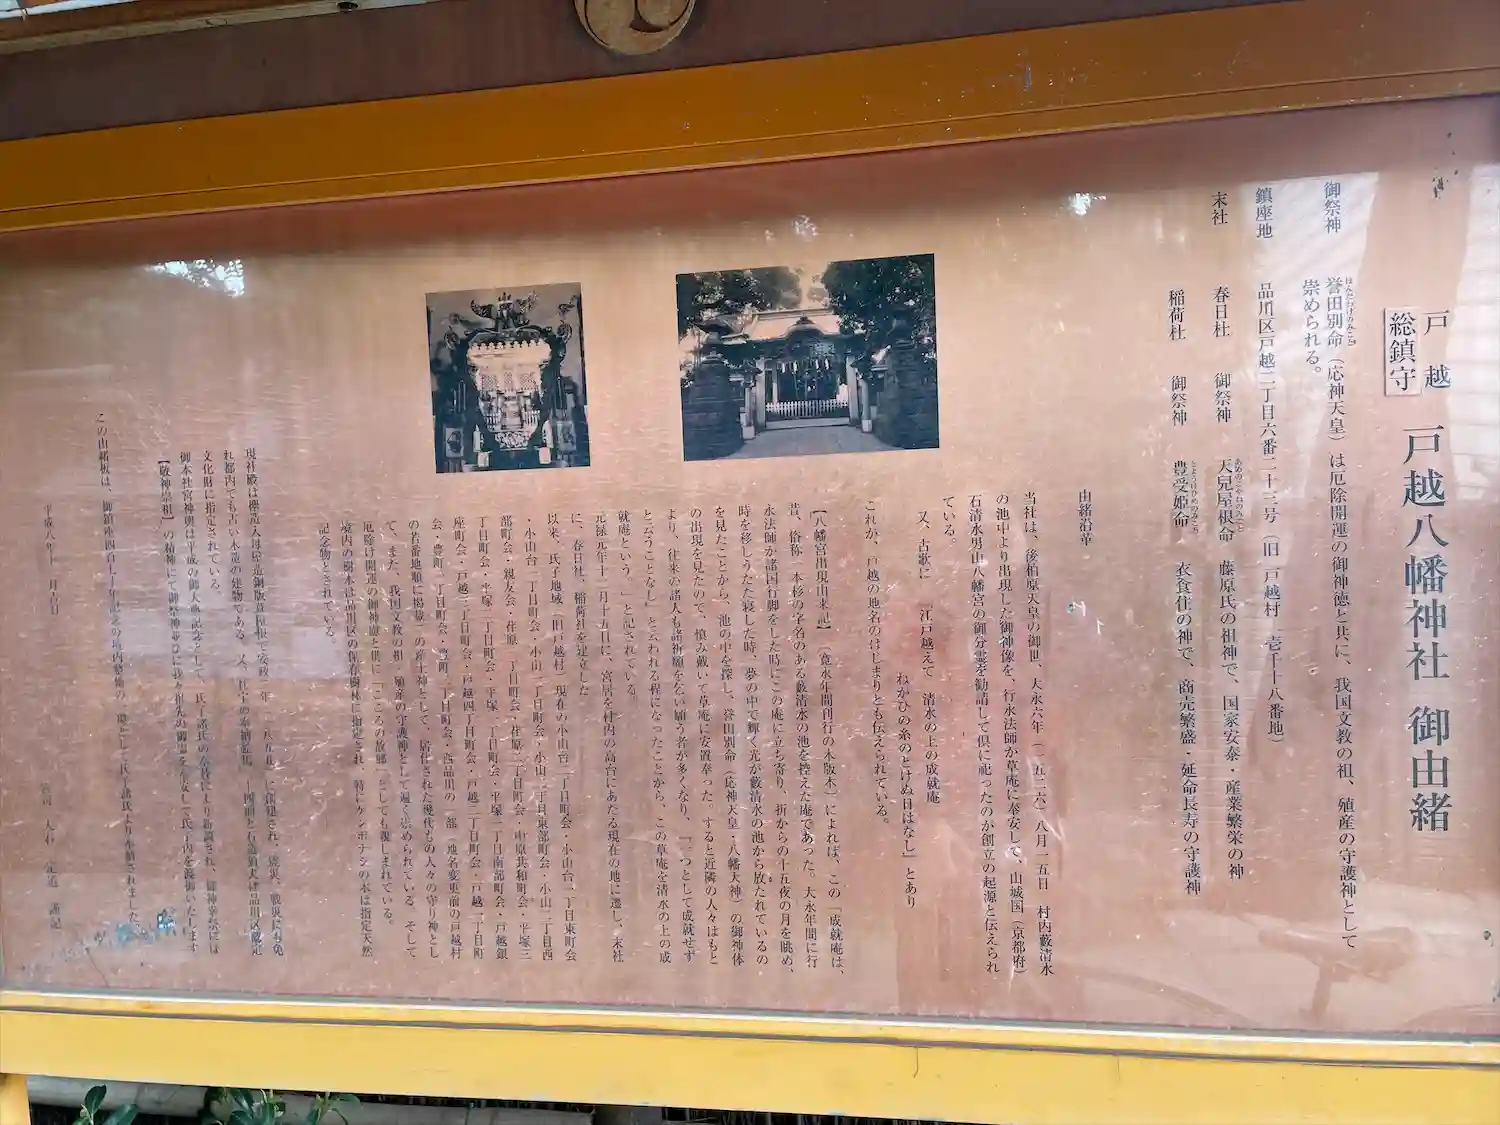 戸越
総鎮守
戸越八幡神社 御由緒
御祭神
誉田別命（応神天皇）は厄除開運の御神徳と共に、我国文教の祖、殖産の守護神として
ほんだわけのみこと
崇められる。
鎮座地 品川区戸越二丁目六番二十三号（旧 戸越村 壱千十八番地）
末社 春日社 御祭神 天児屋根命 藤原氏の祖神で、国家安泰・産業繁栄の神
あめのこやねのみこと
稲荷社 御祭神 豊受姫命 衣食住の神で、商売繁盛・延命長寿の守護神
とようけひめのみこと
由緒沿革
当社は、後柏原天皇の御世、大永六年（一五二六）八月一五日 村内藪清水
の池中より出現した御神像を、行永法師が草庵に奉安して、山城国（京都府）
石清水男山八幡宮の御分霊を勧請して倶に祀ったのが創立の起源と伝えられ
ている。
又、古歌に 「江戸越えて 清水の上の成就庵
ねがひの糸のとけぬ日はなし」とあり
これが、戸越の地名のはじまりとも伝えられている。
【八幡宮出現由来記】（寛永年間刊行の木版木）によれば、この「成就庵は、
昔、俗称一本杉の字名のある藪清水の池を控えた庵であった。大永年間に行
永法師が諸国行脚をした時にこの庵に立ち寄り、折からの十五夜の月を眺め、
時を移しうたた寝した時、夢の中で輝く光が藪清水の池から放たれているの
を見たことから、池の中を探し、誉田別命（応神天皇・八幡大神）の御神体
の出現を見たので、慎み戴いて草庵に安置奉った。すると近隣の人々はもと
より、往来の諸人も諸祈願を乞い願う者が多くなり、『一つとして成就せず
と云うことなし』と云われる程になったことから、この草庵を清水の上の成
就庵という。」と記されている。
元禄元年十一月十五日に、宮居を村内の高台にあたる現在の地に遷し、末社
に、春日社、稲荷社を建立した。
以来、氏子地域（旧戸越村）現在の小山台一丁目町会・小山台一丁目東町会
・小山台二丁目町会・小山一丁目町会・小山二丁目東部町会・小山二丁目西
部町会・親友会・荏原一丁目町会・荏原二丁目町会・中原共和町会・平塚三
丁目町会・平塚二丁目町会・平塚一丁目町会・平塚一丁目南部町会・戸越銀
座町会・戸越三丁目町会・戸越四丁目町会・戸越二丁目町会・戸越一丁目町
会・豊町一丁目町会・豊町二丁目町会・西品川の一部（地名変更前の戸越村
の若番地順に掲載）の産土神として、居住された幾代もの人々の守り神とし
て、また、我国文教の祖、殖産の守護神として遍く崇められている。そして
厄除け開運の御神徳と供に「こころの故郷」としても親しまれている。
境内の樹木は品川区の保存樹林に指定され、特にケンポナシの木は指定天然
記念物とされている。
現社殿は欅造入母屋造銅版葺屋根で安政二年（一八五五）に再建され、震災、戦災にも免
れ都内でも古い木造の建物である。又、社宝の奉納絵馬 四面と石造狛犬は品川区指定
文化財に指定されている。
御本社宮神輿は平成の御大典記念として、氏子諸氏の奉賛により新調され、御神幸祭には
【敬神崇祖】の精神にて御祭神並びに
この由緒板は、御鎮座四百七十年記念の境内整備の一環として氏子諸氏より奉納されました。
平成八年十一月吉日
宮司